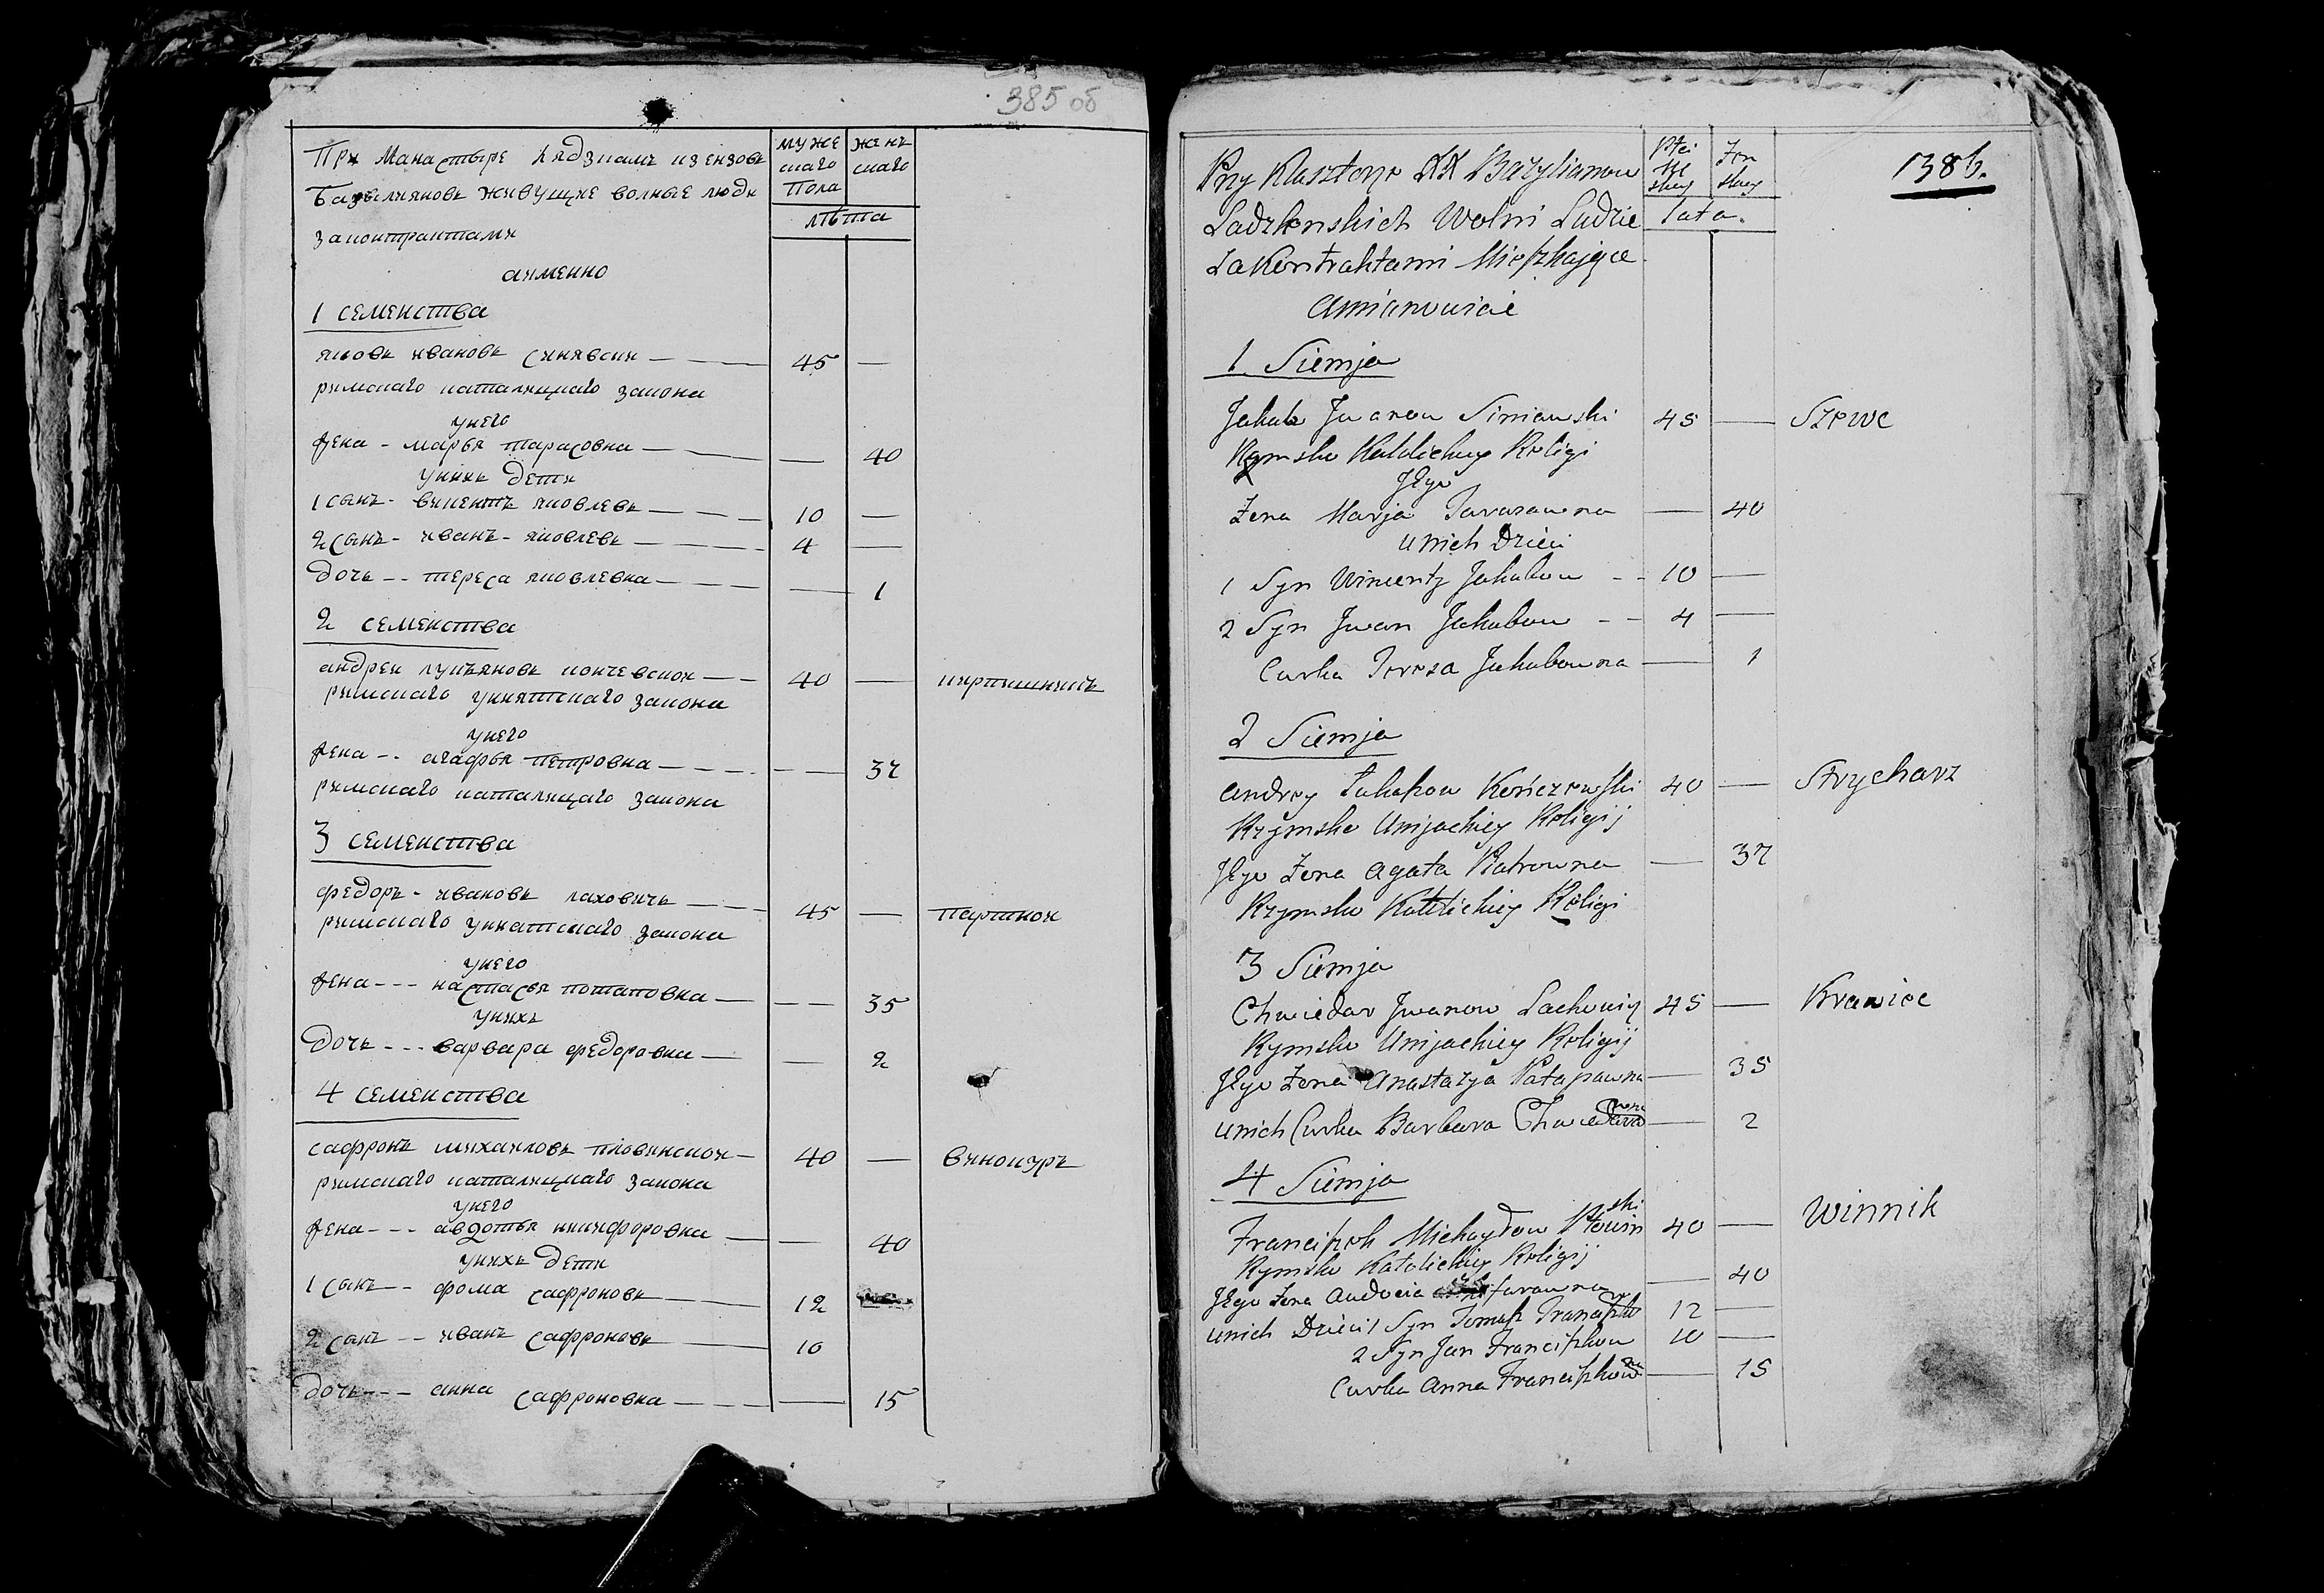 385 об
При Манастыре Лядзкамъ изензовъ
Базылияновъ живущие волные люди
законтрактами
аименно
муже
скаго
пола
женъ
скаго
лѣта
1 семенства
яковъ ивановъ синявски — 45 —
римскаго каталицкаго закона
унего
жена - марья тарасовна — — 40
унихъ дети
1 сынъ - винентъ яковлевъ — 10 —
2 сынъ - иванъ - яковлевъ — 4 —
дочь -- тереса яковлевна — — 1
2 семенства
андреи лукъяновъ кончевскои — 40 — кирпишникъ
римскаго униятскаго закона
унего
жена -- агафья петровна — — 37
римскаго каталицкаго закона
3 семенства
федоръ - ивановъ лаховичъ — 45 — партнои
римскаго униатскаго закона
унего
жена --- настасья потаповна — — 35
унихъ
дочь --- варвара федоровна — — 2
4 семенства
сафронъ михаиловъ пловинскои — 40 — винокуръ
римскаго каталицкаго закона
унего
жена --- авдотья никифоровна — — 40
унихъ дети
1 сынъ -- фома сафроновъ — 12
2 сынъ -- иванъ сафроновъ — 10
дочь --- анна сафроновна — — 15
1386.
Przy Klasztorze XX Bazylianow
Ladzkenskich Wolni Ludzie
Zakontraktami Mieszkające
Amianowicie
Płci
Mę
skey
Żen
skey
lata.
1 Siemja
Jakub Jwanow Siniawski 45 — Szewc
Rzymsko Katolickiey Religi
Jego
Żona Marja Tarasawna — 40
unich Dzieci
1 Syn Wincenty Jakubow - - 10 —
2 Syn Jwan Jakubow - - 4 —
Curka Teresa Jakubowna — 1
2 Siemja
Andrey Łukaszow Kończewski 40 — Strycharz
Rzymsko Unijackiey Religij
Jego Żona Agata Piatrowna — 37
Rzymsko Katolickiey Religi
3 Siemja
Chwiedar Jwanow Lachowicz 45 — Krawiec
Rymsko Unijackiey Religij
Jego Żona Anastazja Patapawna — 35
unich Curka Barbara Chwiedarowna — 2
4 Siemja
Franciszek Michayłow Płowinski 40 — Winnik
Rymsko Katolickiey Religij
Jego Żona Audocia furawna — 40
unich Dzieci 1 Syn Tomasz Franciszkow 12 —
2 Syn Jan Franciszkow 10 —
Curka Anna Franciszkowna — 15